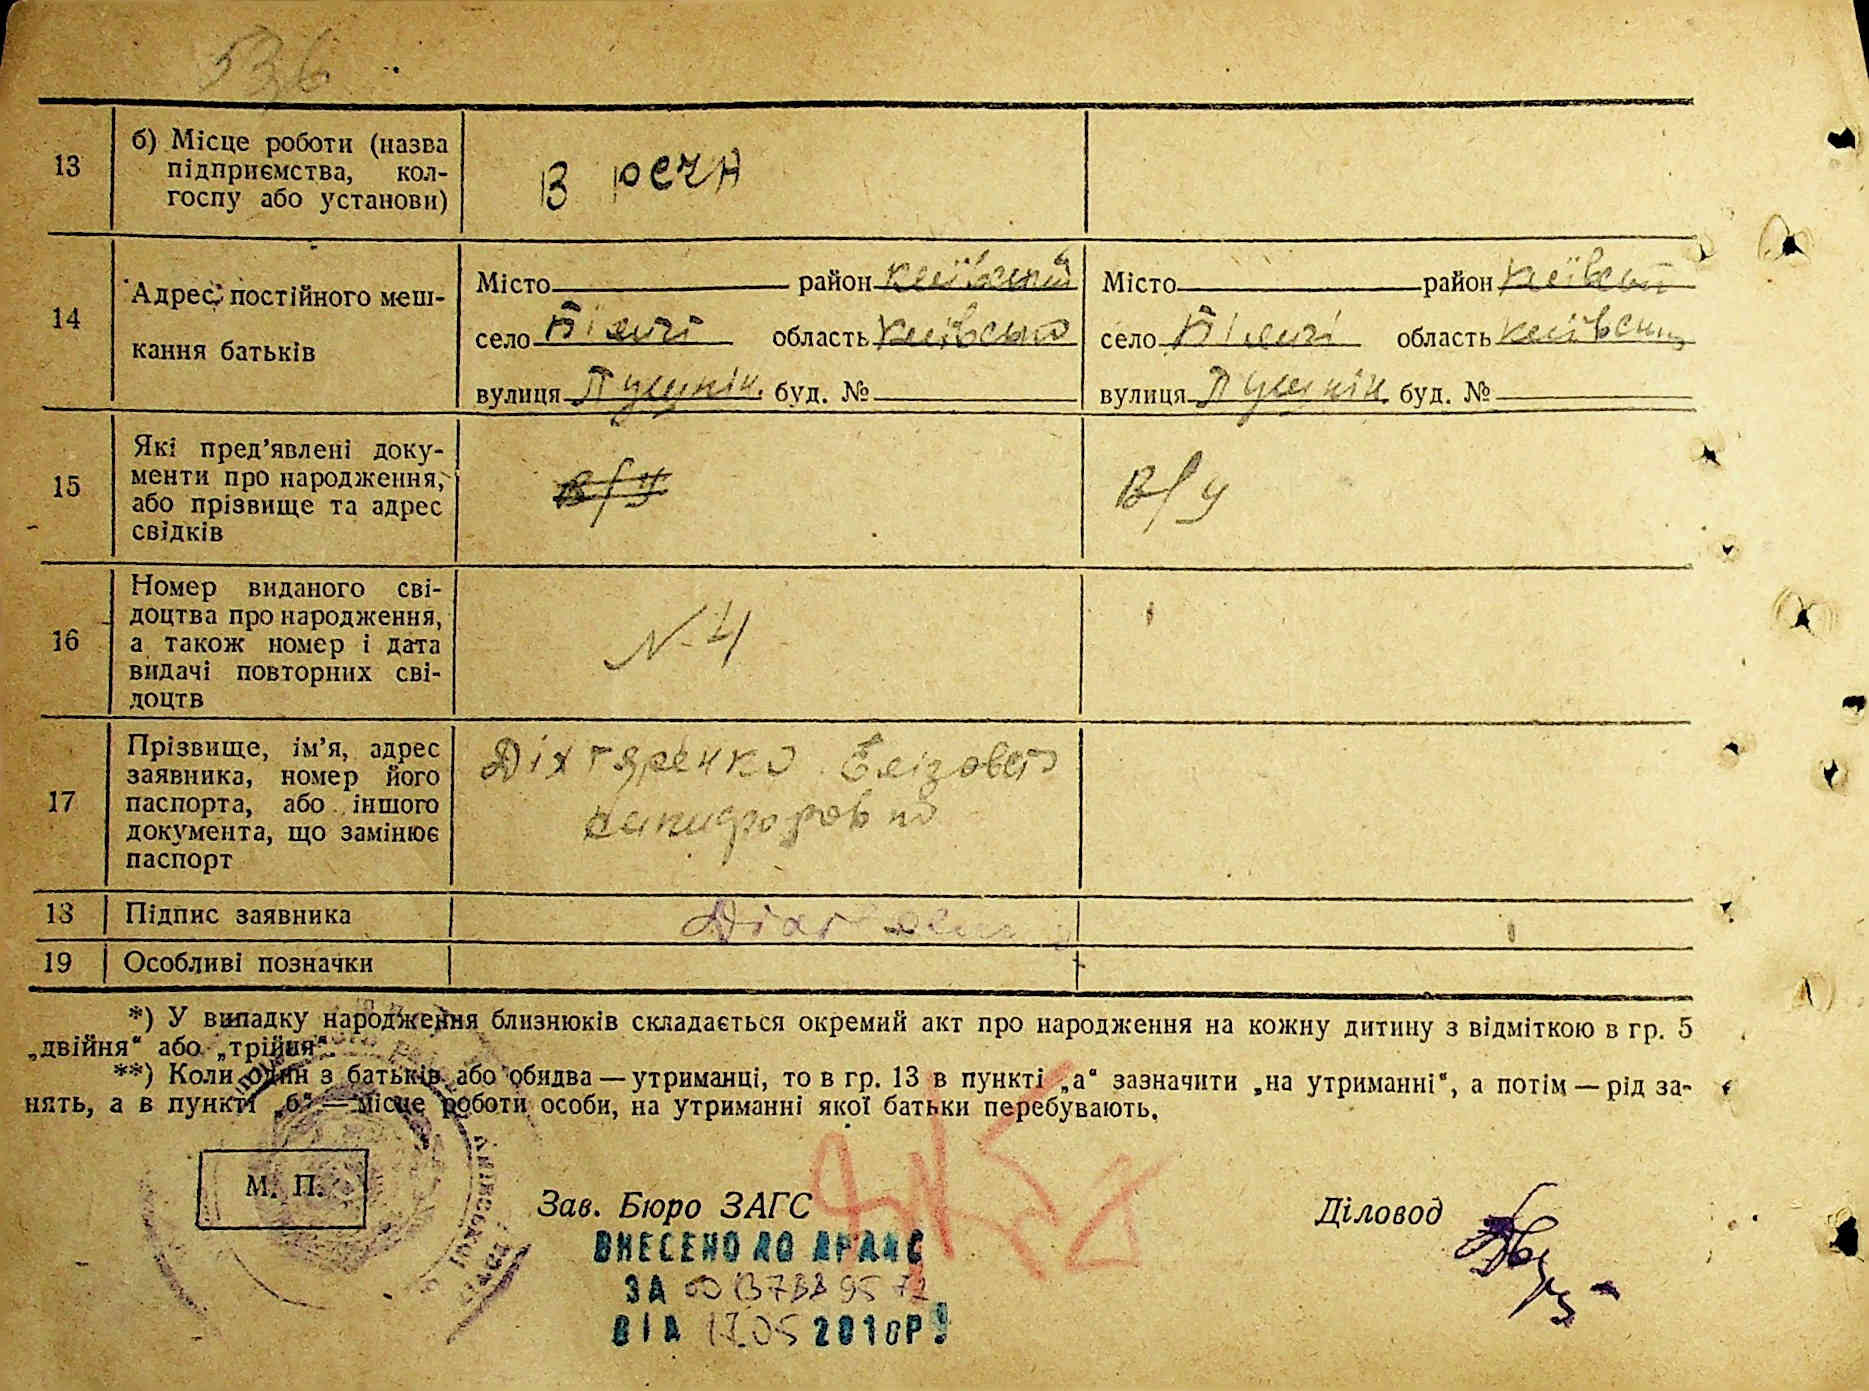 536
13
б) Місце роботи (назва
підприємства, кол-
госпу або установи)
В РСЧА
14
Адрес постійного меш-
кання батьків
Місто район Київський
село Біличі область Київська
вулиця Пушкін. буд. №
Місто район Київськ
село Біличі область Київськ
вулиця Пушкін. буд. №
15
Які пред'явлені доку-
менти про народження,
або прізвище та адрес
свідків
в/у
в/у
16
Номер виданого сві-
доцтва про народження,
а також номер і дата
видачі повторних сві-
доцтв
N. 4
17
Прізвище, ім'я, адрес
заявника, номер його
паспорта, або іншого
документа, що замінює
паспорт
Діхтяренко Елізовета
Никифоровна
18 Підпис заявника
19 Особливі позначки
*) У випадку народження близнюків складається окремий акт про народження на кожну дитину з відміткою в гр. 5
„двійня“ або „трійня“.
**) Коли один з батьків або обидва — утриманці, то в гр. 13 в пункті „а“ зазначити „на утриманні“, а потім — рід за-
нять, а в пункті „б“ — місце роботи особи, на утриманні якої батьки перебувають.
М. П.
Зав. Бюро ЗАГС
Діловод
ВНЕСЕНО ДО ДРАЦС
ЗА
ВІД 17.05 2010Р.